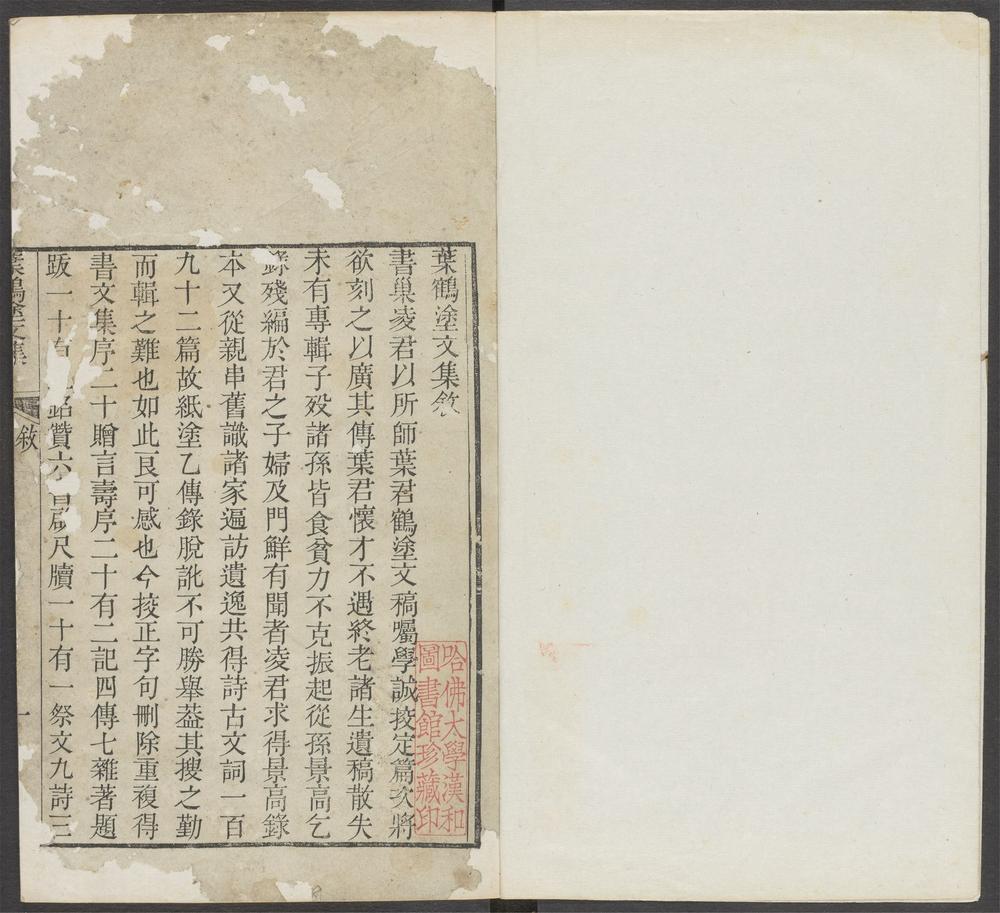 葉鶴塗文集敘
書巢凌君以所師葉君鶴塗文稿屬學誠挍定篇次將
欲刻之以廣其傳葉君懷才不遇終老諸生遺稿散失
未有專輯子殁諸孫皆食貧力不克振起從孫景高乞
錄殘編於君之子婦及門鮮有聞者凌君求得景高錄
本又從親串舊識諸家遍訪遺逸共得詩古文詞一百
九十二篇故紙塗乙傳錄脫訛不可勝舉葢其搜之勤
而輯之難也如此良可感也今挍正字句刪除重複得
書文集序二十贈言壽序二十有二記四傳七雜著題
跋一十有銘贊六尺牘一十有一祭文九詩三
葉鶴塗文集
敘
一
哈佛大學漢和
圖書館珍藏印